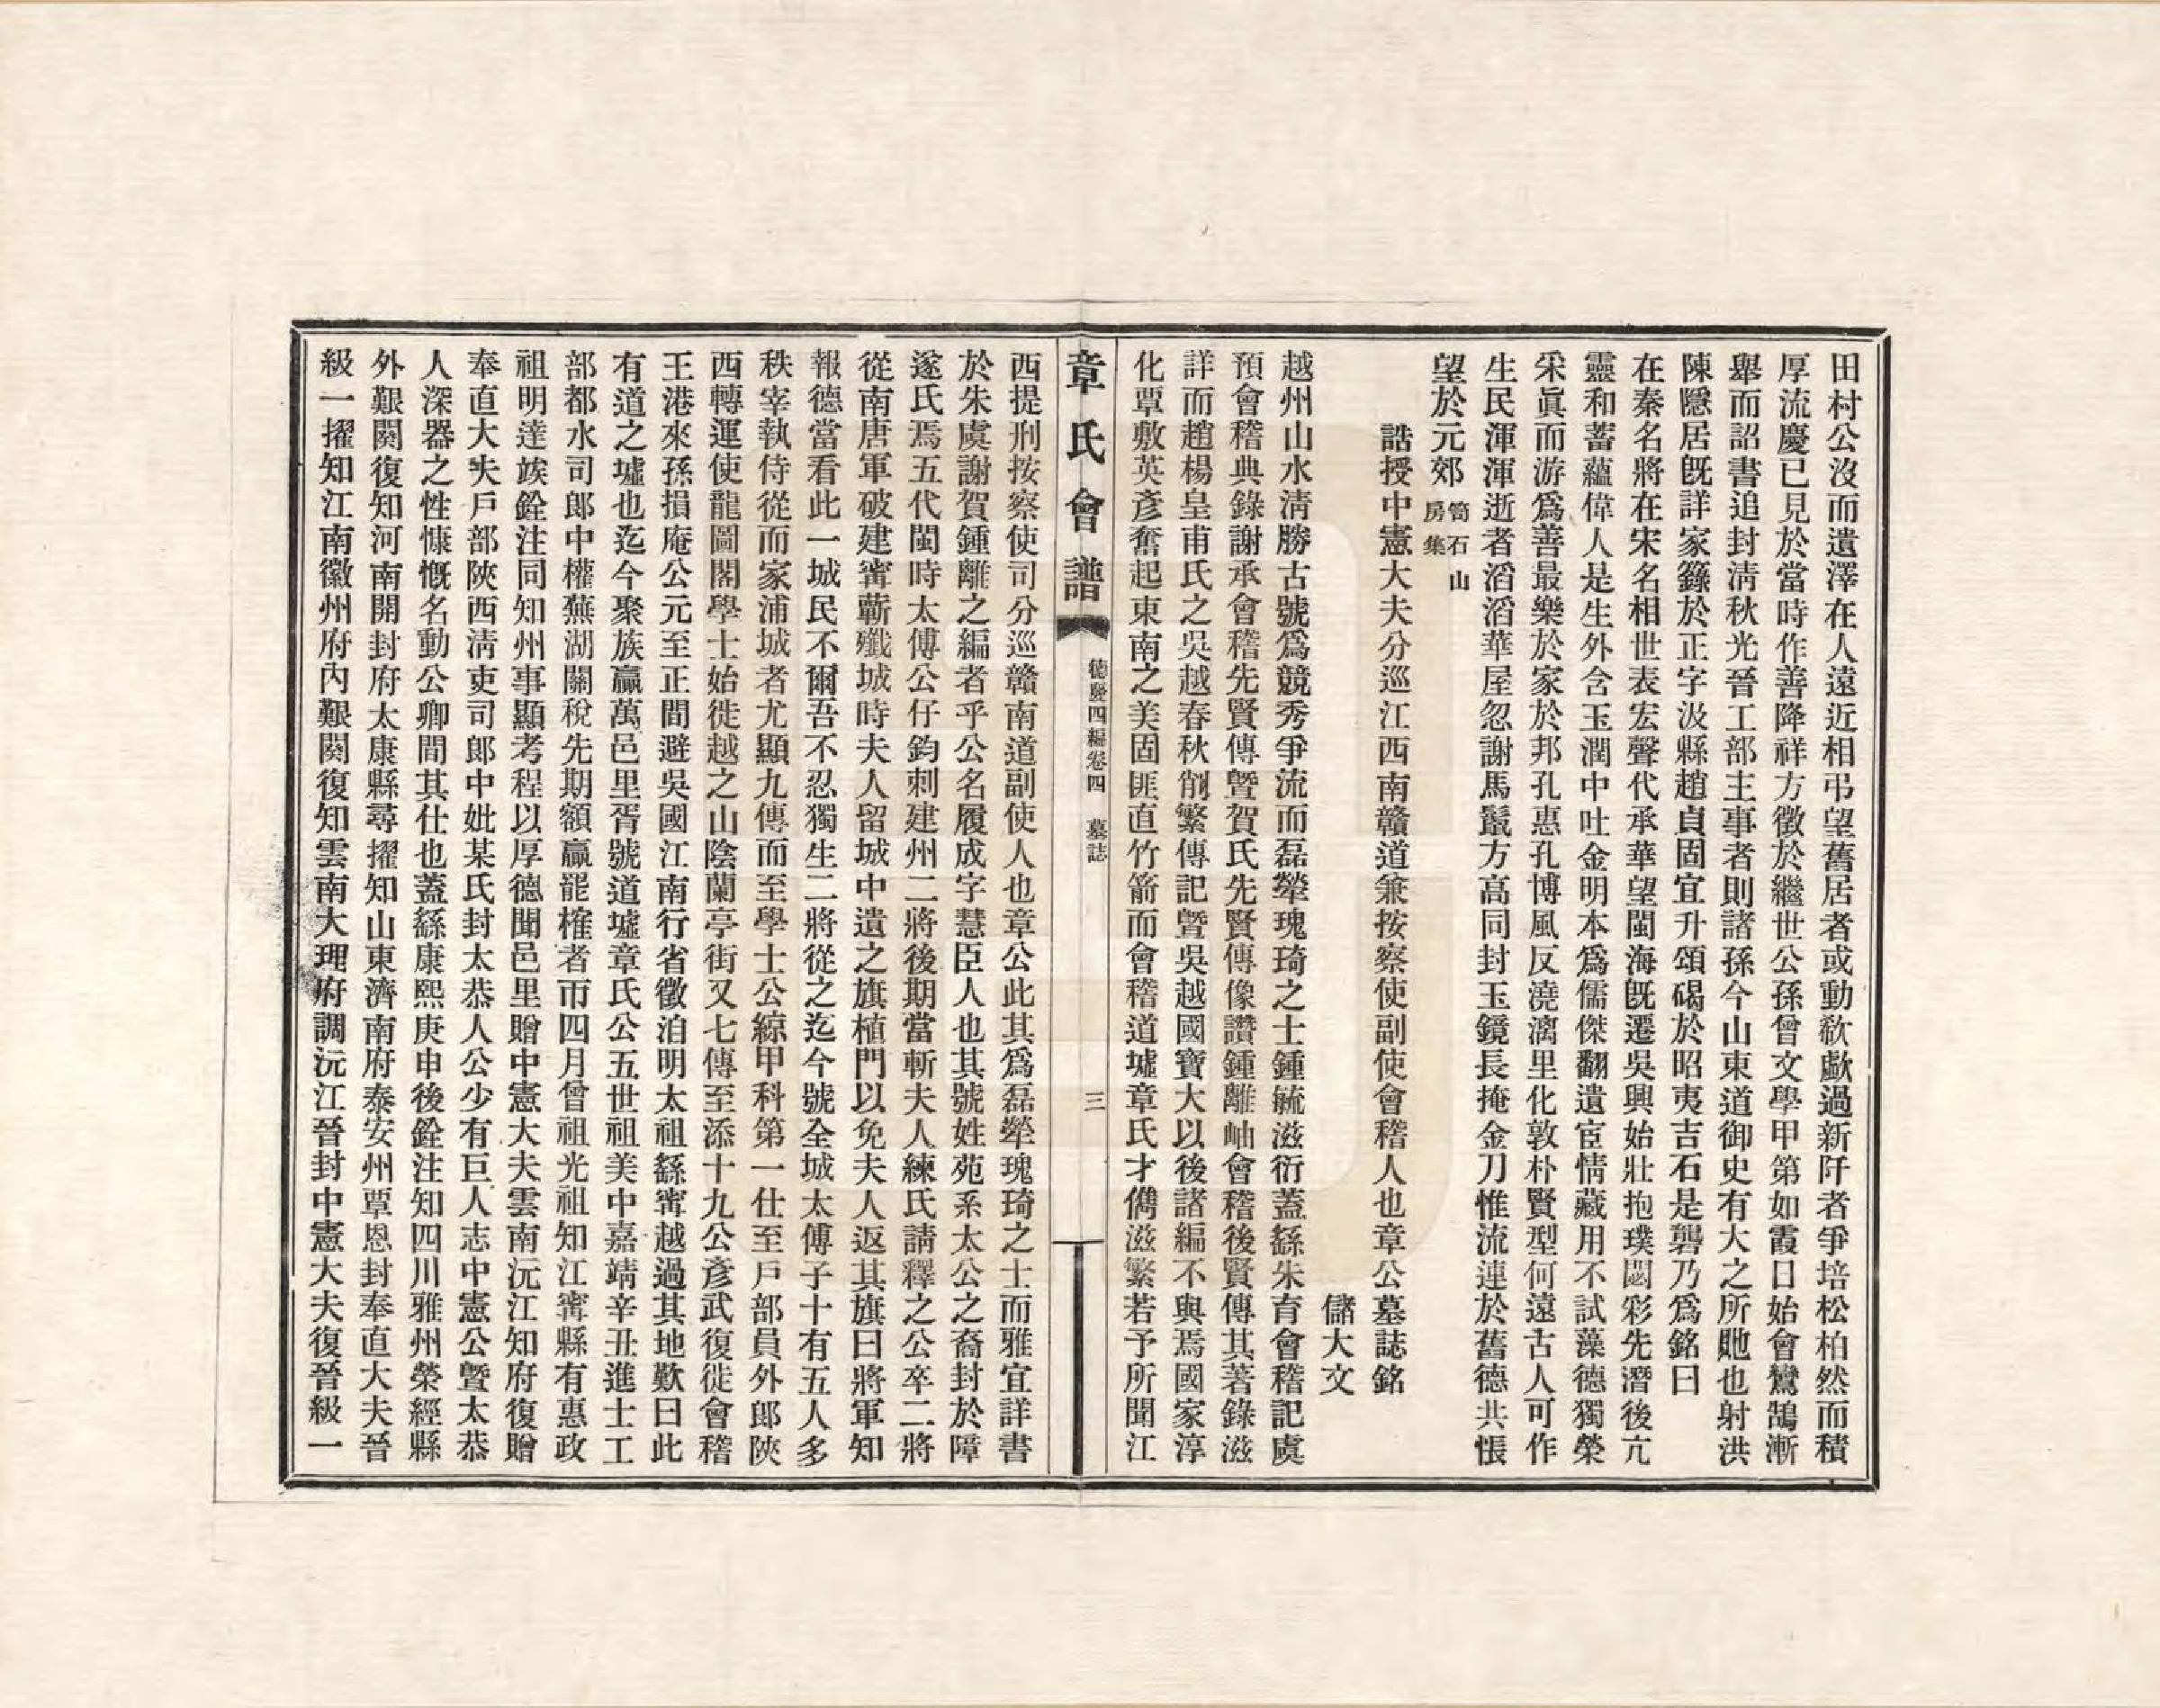 田村公沒而遺澤在人遠近相弔望舊居者或動欷歔過新阡者爭培松柏然而積
厚流慶已見於當時作善降祥方徵於繼世公孫曾文學甲第如霞日始會鸞鵠漸
舉而詔書追封清秋光晉工部主事者則諸孫今山東道御史有大之所貤也射洪
陳隱居旣詳家籙於正字汲縣趙貞固宜升頌碣於昭夷吉石是礱乃爲銘曰
在秦名將在宋名相世表宏聲代承華望閩海旣遷吳興始壯抱璞閟彩先潛後亢
靈和蓄蘊偉人是生外含玉潤中吐金明本爲儒傑翻遺宦情藏用不試藻德獨榮
采眞而游爲善最樂於家於邦孔惠孔博風反澆漓里化敦朴賢型何遠古人可作
生民渾渾逝者滔滔華屋忽謝馬鬣方高同封玉鏡長掩金刀惟流連於舊德共悵
望於元郊 笥石山房集
誥授中憲大夫分巡江西南贛道兼按察使副使會稽人也章公墓誌銘
儲大文
越州山水淸勝古號爲競秀爭流而磊犖瑰琦之士鍾毓滋衍蓋繇朱育會稽記虞
預會稽典錄謝承會稽先賢傳曁賀氏先賢傳像讚鍾離岫會稽後賢傳其著錄滋
詳而趙楊皇甫氏之吳越春秋削繁傳記曁吳越國寶大以後諸編不與焉國家淳
化覃敷英彥奮起東南之美固匪直竹箭而會稽道墟章氏才儁滋繁若予所聞江
章氏會譜 德慶四編卷四 墓誌 三
西提刑按察使司分巡贛南道副使人也章公此其爲磊犖瑰琦之士而雅宜詳書
於朱虞謝賀鍾離之編者乎公名履成字慧臣人也其號姓苑系太公之裔封於障
遂氏焉五代閩時太傅公仔鈞刺建州二將後期當斬夫人練氏請釋之公卒二將
從南唐軍破建寗蘄殲城時夫人留城中遺之旗植門以免夫人返其旗曰將軍知
報德當看此一城民不爾吾不忍獨生二將從之迄今號全城太傅子十有五人多
秩宰執侍從而家浦城者尤顯九傳而至學士公綜甲科第一仕至戶部員外郎陝
西轉運使龍圖閣學士始徙越之山陰蘭亭街又七傳至添十九公彥武復徙會稽
王港來孫損庵公元至正間避吳國江南行省徵泊明太祖繇寗越過其地歎曰此
有道之墟也迄今聚族贏萬邑里胥號道墟章氏公五世祖美中嘉靖辛丑進士工
部都水司郎中權蕪湖關稅先期額贏罷榷者帀四月曾祖光祖知江寗縣有惠政
祖明達竢銓注同知州事顯考程以厚德聞邑里贈中憲大夫雲南沅江知府復贈
奉直大夫戶部陝西淸吏司郎中妣某氏封太恭人公少有巨人志中憲公曁太恭
人深器之性慷慨名動公卿間其仕也蓋繇康熙庚申後銓注知四川雅州榮經縣
外艱闋復知河南開封府太康縣尋擢知山東濟南府泰安州覃恩封奉直大夫晉
級一擢知江南徽州府內艱闋復知雲南大理府調沅江晉封中憲大夫復晉級一